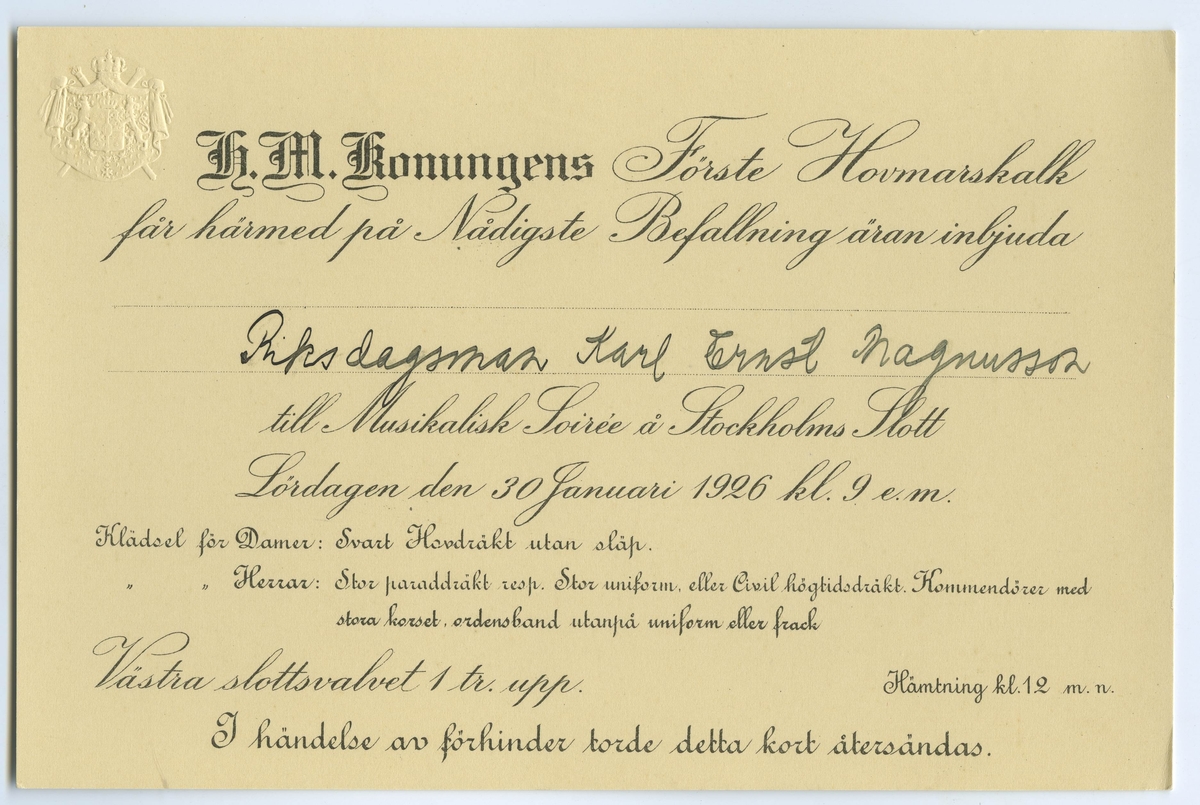 H. M. Konungens Förste Hovmarskalk
får härmed på Nådigste Befallning äran inbjuda
Riksdagsman Karl Ernst Magnusson
till Musikalisk Soirée å Stockholms Slott
Lördagen den 30 Januari 1926 kl. 9 e. m.
Klädsel för Damer: Svart Hovdräkt utan släp.
„ „ Herrar: Stor paraddräkt resp. Stor uniform, eller Civil högtidsdräkt. Kommendörer med
stora korset, ordensband utanpå uniform eller frack
Västra slottsvalvet 1 tr. upp. Hämtning kl. 12 m. n.
I händelse av förhinder torde detta kort återsändas.